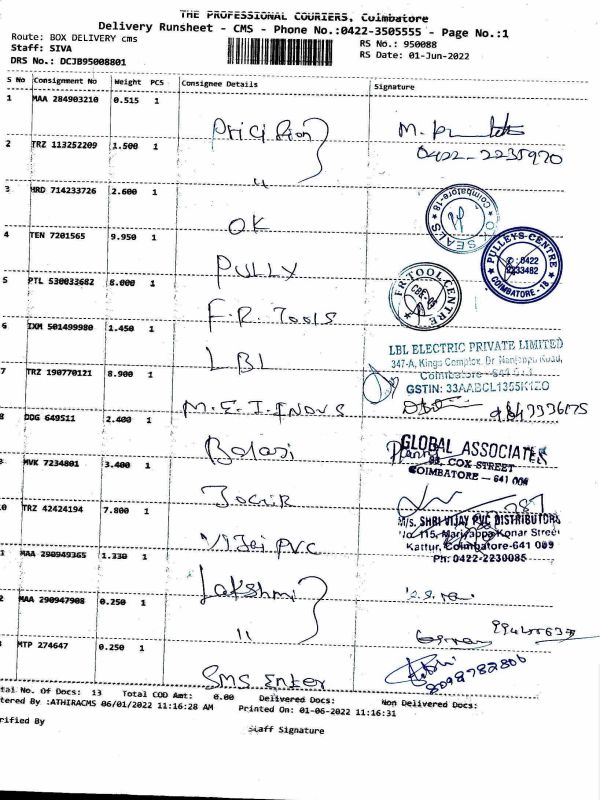 THE PROFESSIONAL COURIERS, Coimbatore
Delivery Runsheet - CMS - Phone No.:0422-3505555 - Page No.:1
Route: BOX DELIVERY cms
Staff: SIVA
DRS No.: DCJB95008801
RS No.: 950088
RS Date: 01-Jun-2022
S No Consignment No Weight PCS Consignee Details Signature
1 MAA 284903210 0.515 1
0422-2235970
2 TRZ 113252209 1.500 1
"
3 HRD 714233726 2.600 1 OK
Coimbatore-18
SEALS
4 TEN 7201565 9.950 1 PULLY
PULLEYS CENTRE
✆ : 0422
2233482
COIMBATORE - 18
5 PTL 530033682 8.000 1 F.R. Tools
FR TOOL CENTRE
6 IXM 501499980 1.450 1 LBL
LBL ELECTRIC PRIVATE LIMITED
347-A, Kings Complex, Dr. Nanjappa Road,
Coimbatore
GSTIN: 33AABCL1355K1ZO
7 TRZ 190770121 8.900 1
8 DDG 649511 2.400 1 Balaji
GLOBAL ASSOCIATES
COX STREET
COIMBATORE - 641 004
MVK 7234801 3.400 1
0 TRZ 42424194 7.800 1 Vijai PVC
M/s. SHRI VIJAY PVC DISTRIBUTORS
No 115, Mariyappa Konar Street
Kattur, Coimbatore-641 009
Ph: 0422-2230085
1 MAA 290949365 1.330 1 Lakshmi
2 MAA 290947908 0.250 1 "
MTP 274647 0.250 1 SMS Enter
8098782806
tal No. Of Docs: 13 Total COD Amt: 0.00 Delivered Docs: Non Delivered Docs:
tered By :ATHIRACMS 06/01/2022 11:16:28 AM Printed On: 01-06-2022 11:16:31
rified By Staff Signature